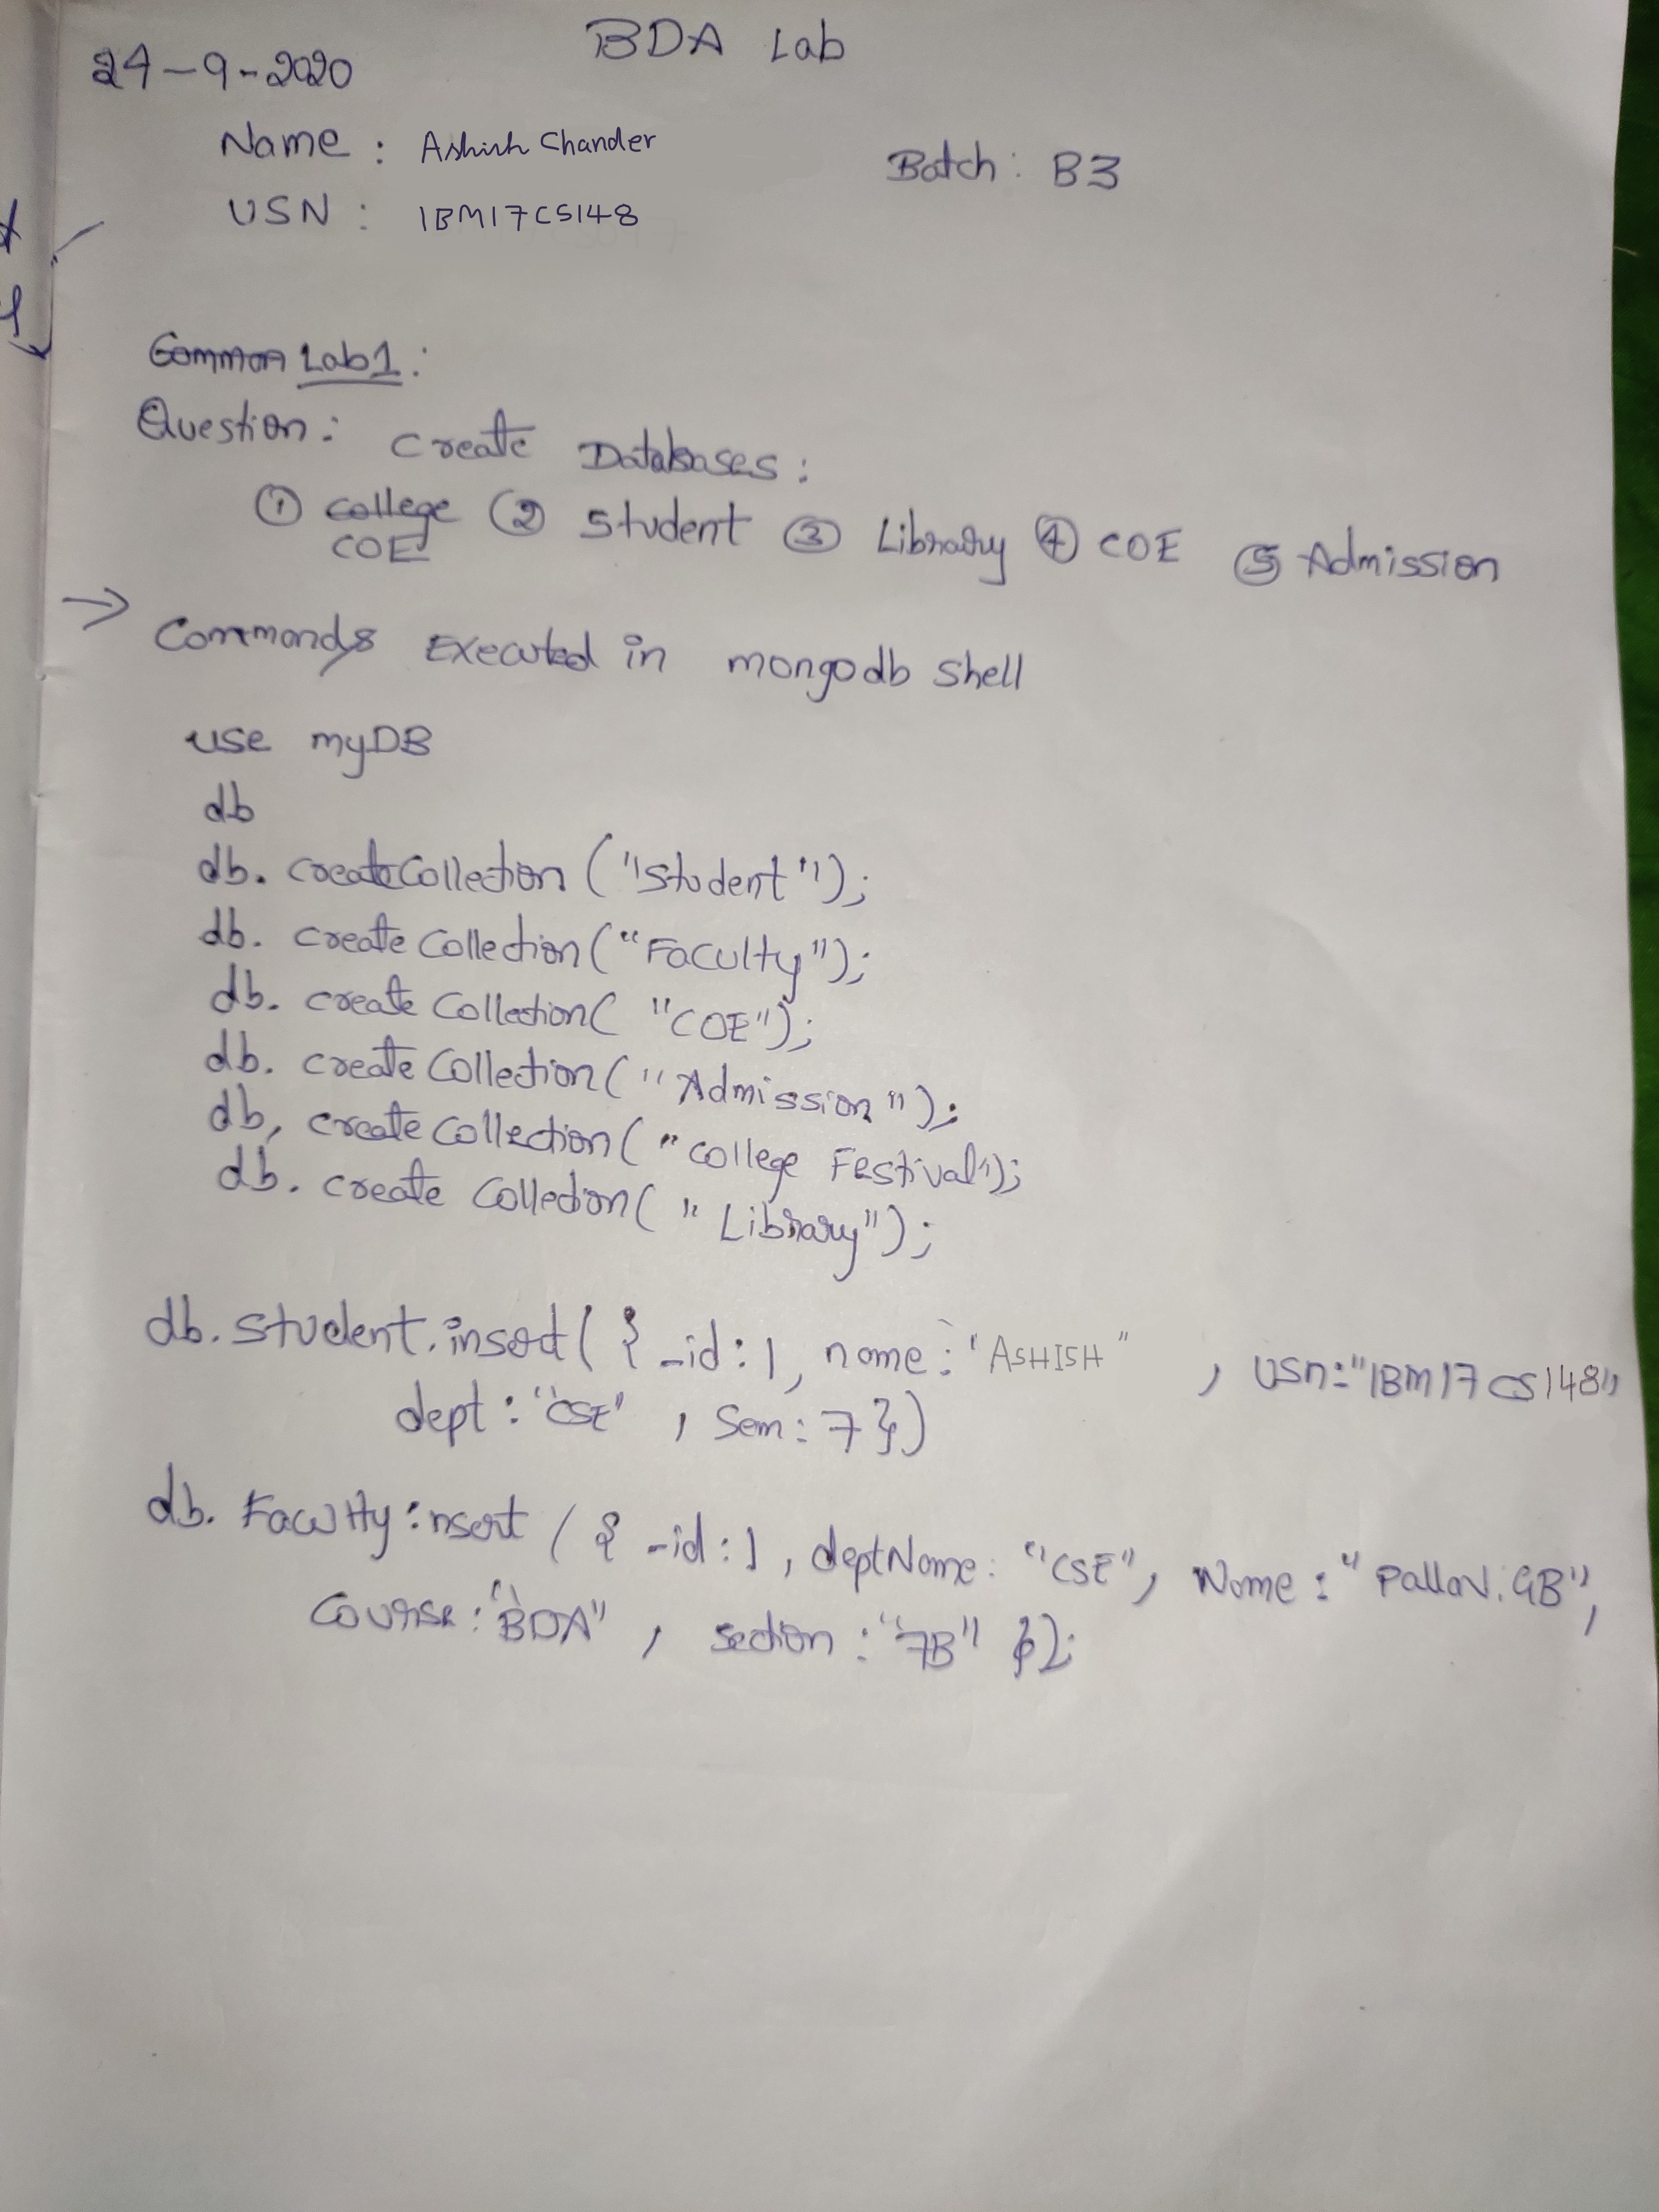 BDA Lab
24-9-2020
Name : Ashish Chander
Batch : B3
USN : 1BM17CS148
Common Lab1:
Question: Create Databases:
① College ② Student ③ Library ④ COE ⑤ Admission
COE
→ Commands Executed in mongodb shell
use myDB
db
db. createCollection ("Student");
db. create Collection ("Faculty");
db. create Collection( "COE");
db. create Collection ("Admission");
db. create Collection ("College Festival");
db. create Collection( "Library");
db. Student. insert ( { _id: 1, name: "ASHISH" , USn: "1BM17CS148",
dept : "CSE" , Sem: 7 })
db. Faculty.insert ( { _id: 1, deptName: "CSE", Name: "Pallavi.GB",
Course: "BDA" , section : "7B" });